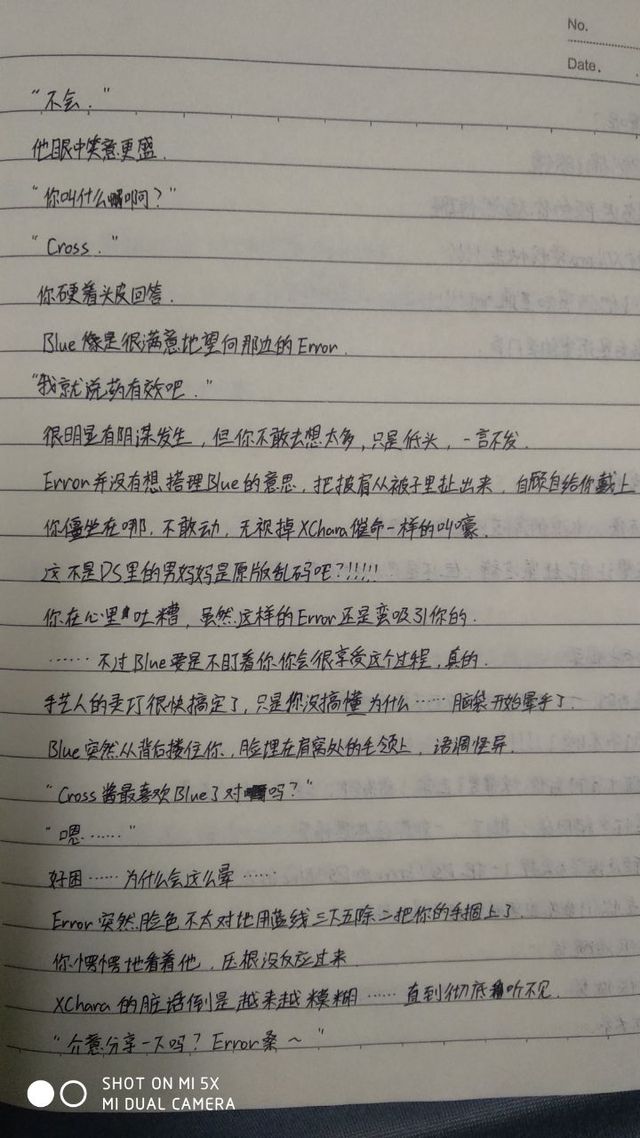 No.
Date.
“不会.”
他眼中笑意更盛.
“你叫什么啊?”
“Cross.”
你硬着头皮回答.
Blue像是很满意地望向那边的Error.
“我就说药有效吧.”
很明显有阴谋发生,但你不敢去想太多,只是低头,一言不发.
Error并没有想搭理Blue的意思,把披肩从被子里扯出来,自顾自给你戴上.
你僵坐在哪,不敢动,无视掉XChara催命一样的叫嚎.
这不是DS里的男妈妈是原版乱码吧?!!!!!
你在心里吐糟,虽然这样的Error还是蛮吸引你的.
……不过Blue要是不盯着你你会很享受这个过程,真的.
手艺人的卖巧很快搞定了,只是你没搞懂为什么……脑袋开始晕乎了.
Blue突然从背后搂住你,脸埋在肩窝处的毛领上,语调怪异.
“Cross酱最喜欢Blue了对吗?”
“嗯……”
好困……为什么会这么晕……
Error突然脸色不太对地用蓝线三下五除二把你的手捆上了.
你愣愣地看着他,压根没反应过来.
XChara的脏话倒是越来越模糊……直到彻底听不见.
“介意分享一下吗? Error桑~”
SHOT ON MI 5X
MI DUAL CAMERA